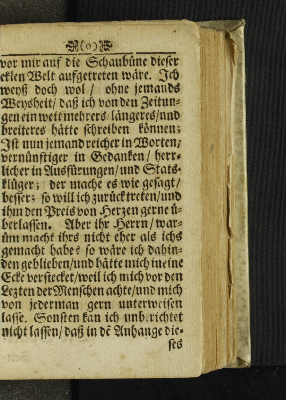 (o)
vor mir auf die Schaubüne dieser
eklen Welt aufgetreten wäre. Ich
weyß doch wol / ohne jemands
Weysheit / daß ich von den Zeitun-
gen ein weit mehrers / längeres / und
breiteres hätte schreiben können;
Ist nun jemand reicher in Worten /
vernünftiger in Gedanken / herr-
licher in Ausfürungen / und Stats-
klüger; der mache es wie gesagt /
besser; so will ich zurück treten / und
ihm den Preis von Herzen gerne ü-
berlassen. Aber ihr Herrn / war-
üm macht ihrs nicht eher als ichs
gemacht habe? so wäre ich dahin-
den geblieben / und hätte mich in eine
Ecke verstecket / weil ich mich vor den
Lezten der Menschen achte / und mich
von jederman gern unterweisen
lasse. Sonsten kan ich unberichtet
nicht lassen / daß in dē Anhange die-
ses